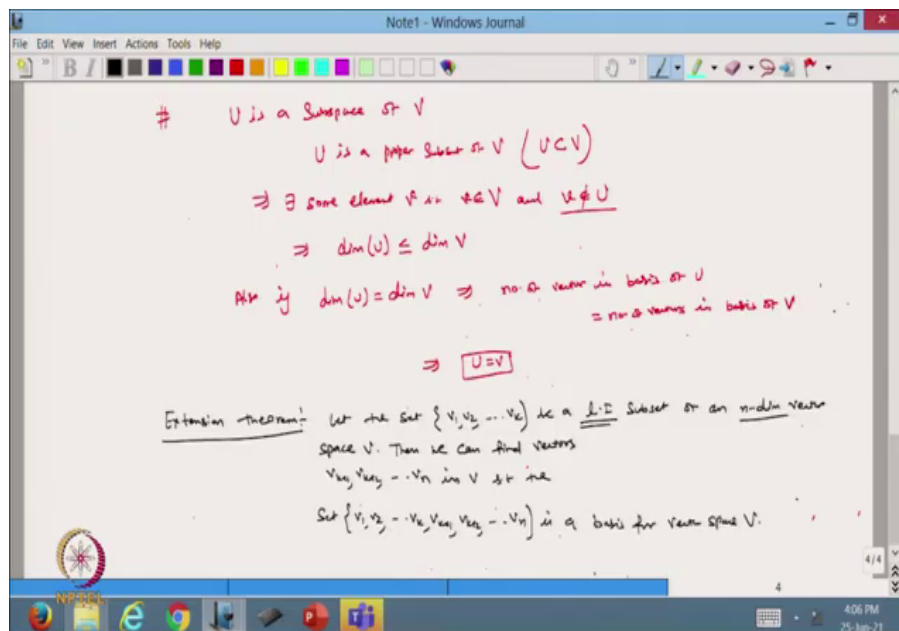 Note1 - Windows Journal
File Edit View Insert Actions Tools Help
B I
# U is a Subspace of V
U is a proper Subset of V (U⊂V)
⇒ ∃ some element v st v∈V and v∉U
⇒ dim(U) ≤ dim V
Also if dim(U) = dim V ⇒ no. of vectors in basis of U
= no. of vectors in basis of V
⇒ U=V
Extension theorem: Let the set {v1, v2, ... vk} be a L.I subset of an n-dim vector
space V. Then we can find vectors
vk+1, vk+2, -- vn in V st the
Set {v1, v2, -- vk, vk+1, vk+2, -- vn} is a basis for vector space V.
4/4
4
NPTEL
4:06 PM
25-Jun-21